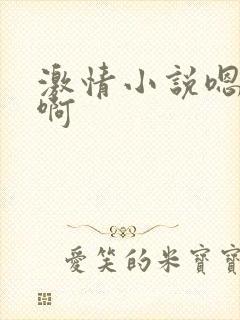 激情小說嗯
啊
愛笑的米寶寶